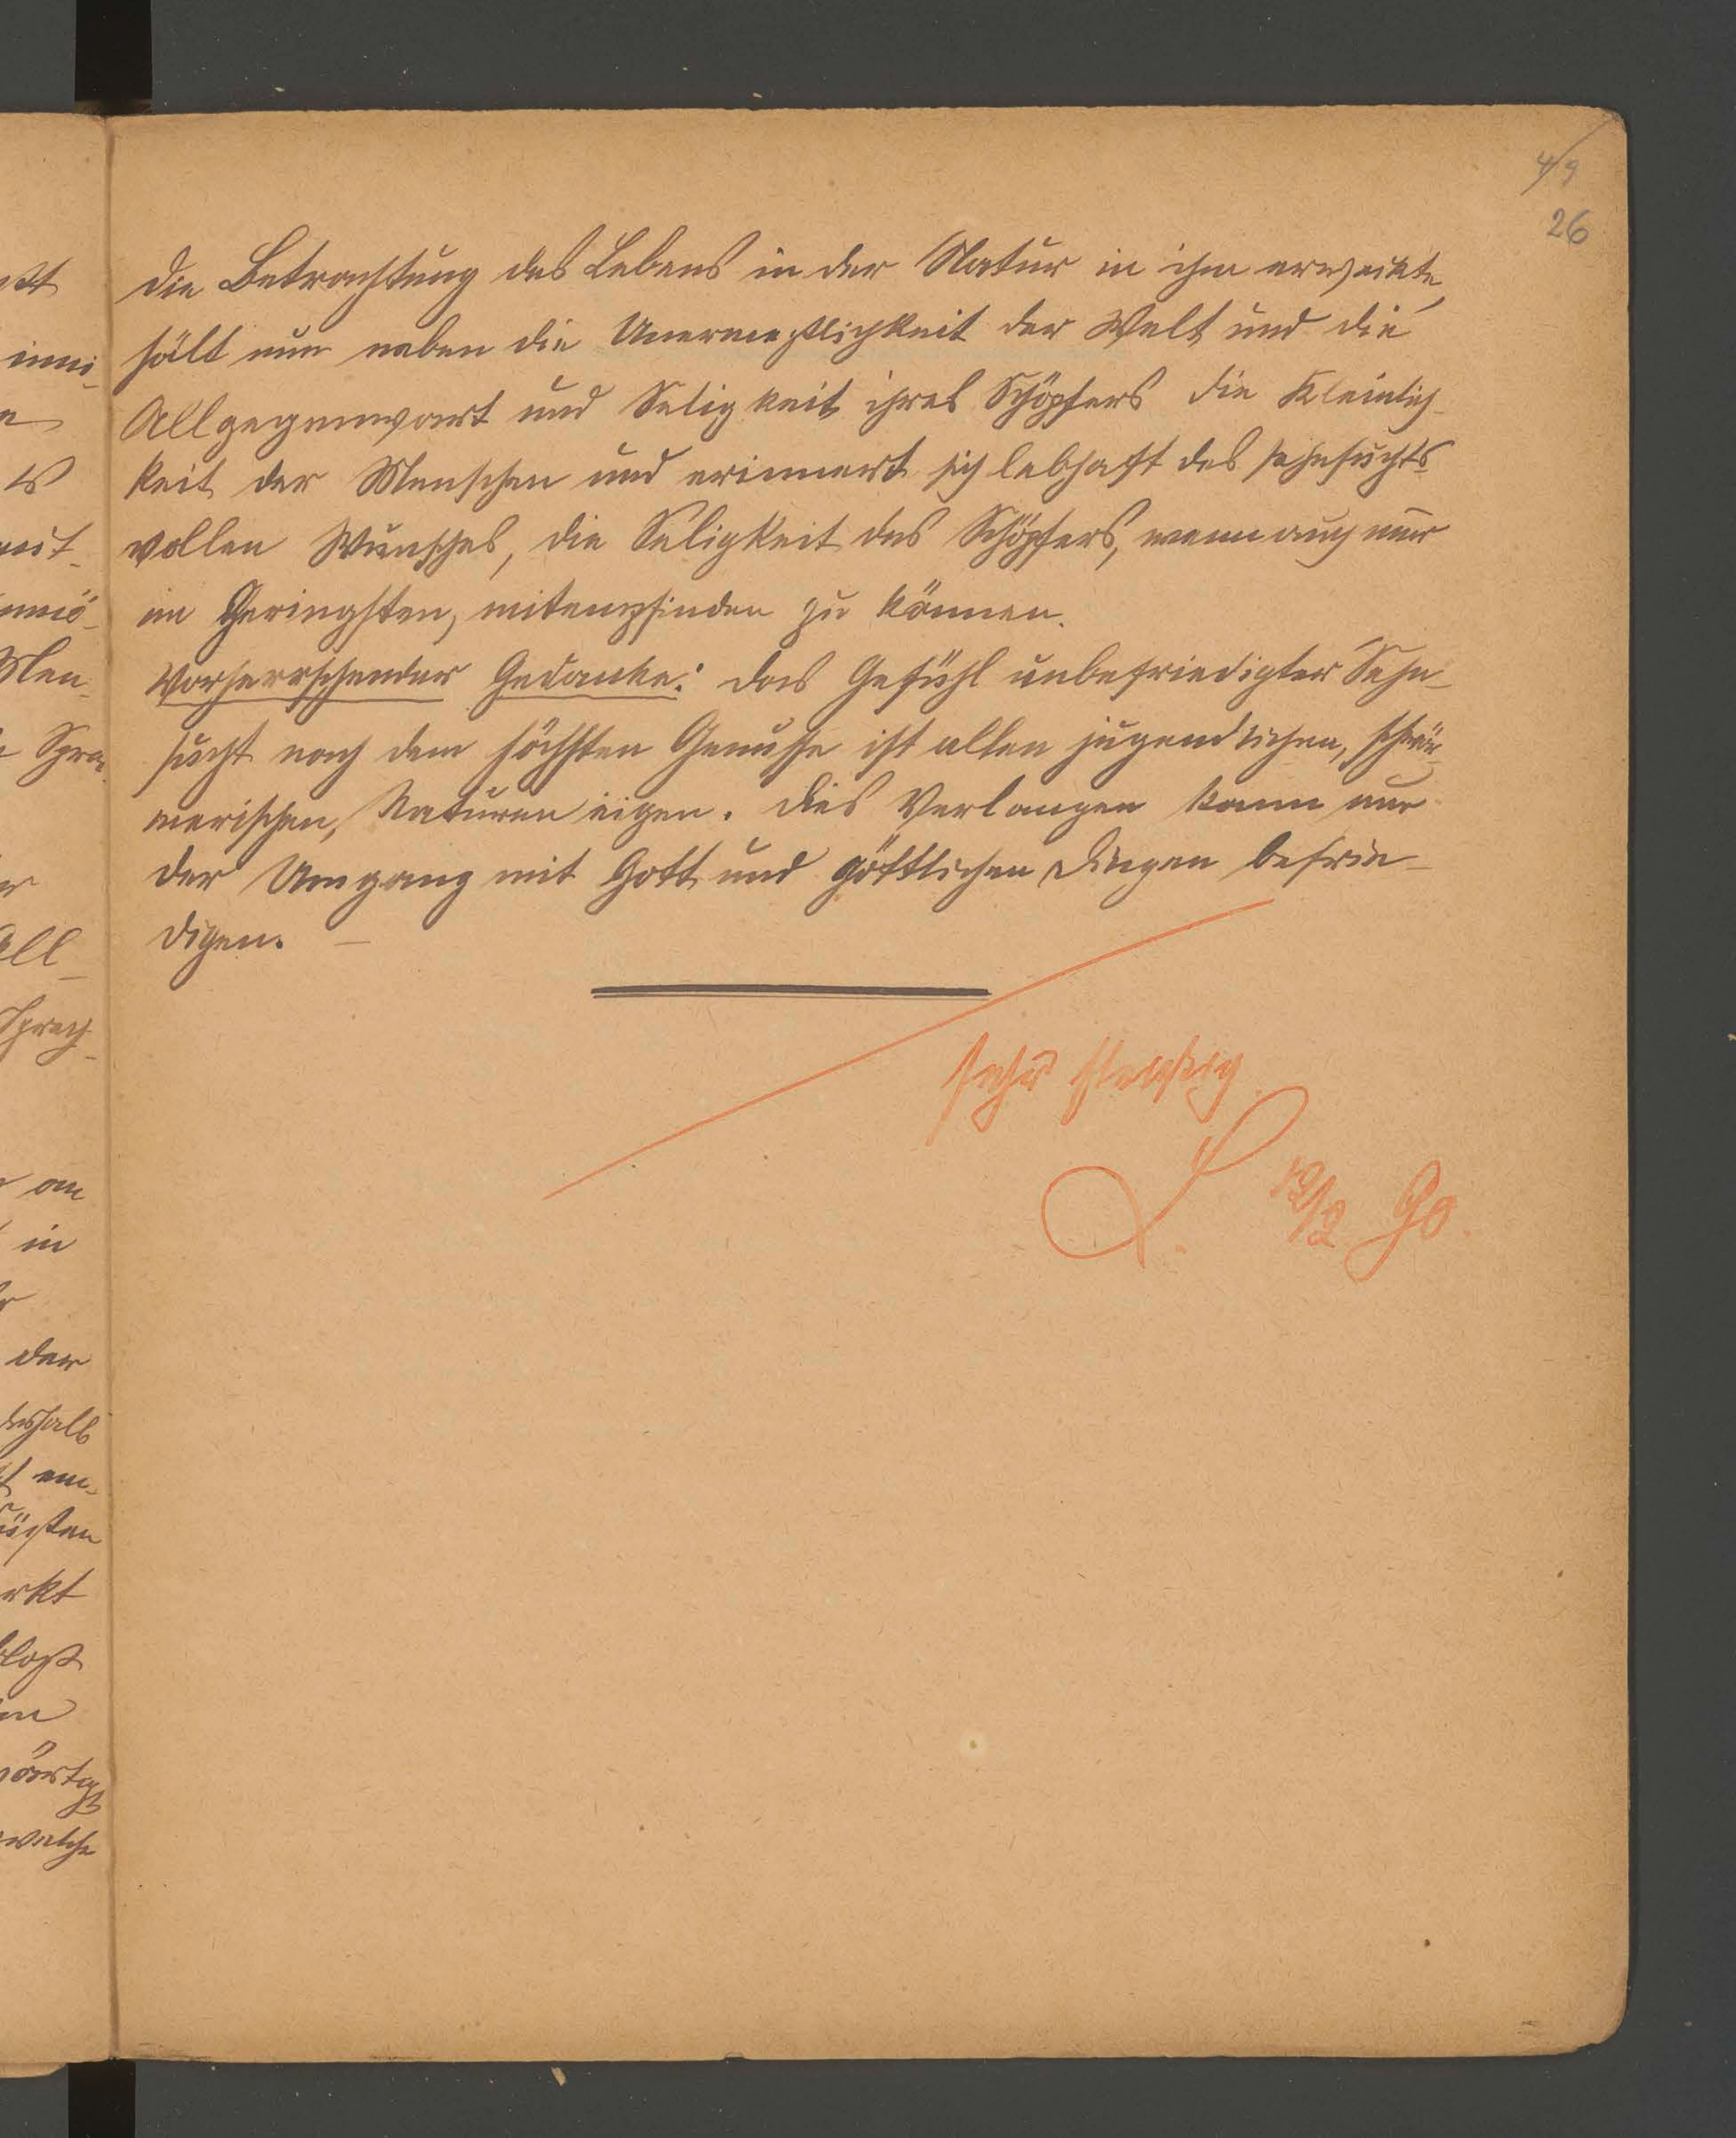 4/9
26
die Betrachtung des Lebens in der Natur in ihm erweckte,
hält nun neben die Unermeßlichkeit der Welt und die
Allgegenwart und Seligkeit ihres Schöpfers die Kleinlich-
keit der Menschen und erinnert sich lebhaft des sehnsuchts-
vollen Wunsches, die Seligkeit des Schöpfers, wenn auch nur
im Geringsten, mitempfinden zu können.
Vorherrschender Gedanke: Das Gefühl unbefriedigter Sehn-
sucht nach dem höchsten Genusse ist allen jugendlichen, schwär-
merischen, Naturen eigen. Dies Verlangen kann nur
der Umgang mit Gott und göttlichen Dingen befrie-
digen. —
sehr fleißig.
L. 12/2 90.
inni-
Men-
All-
an
in
der
deshalb
welche